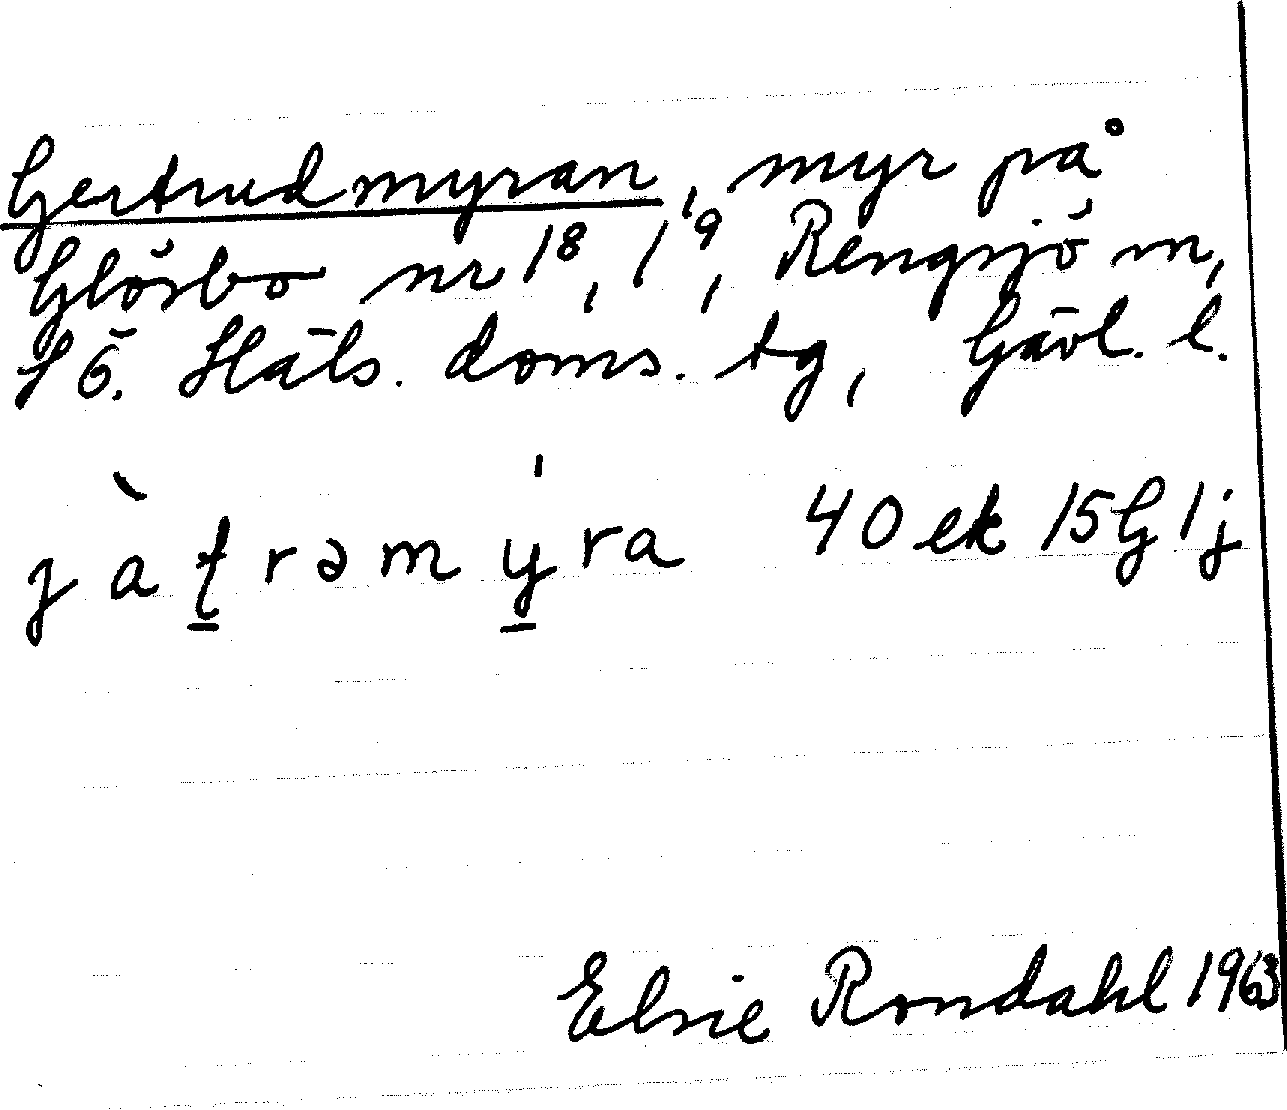 Gertrudmyran, myr på
Glösbo nr 1⁸, 1⁹, Rengsjö sn,
Sö. Häls. doms. tg, Gävl. l.
jàt̠rəmy̠ra 40 ek 15G 1j
Elsie Rondahl 1963